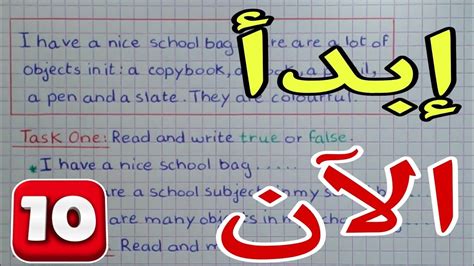 I have a nice school bag are a lot of
objects in it: a copybook, a
a pen and a slate. They are colourful.
إبدأ
Task One: Read and write true or false.
I have a nice school bag
are a school subject in my
are many objects in
Read and
الآن
10